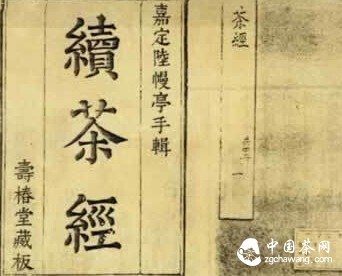 嘉定陸幔亭手輯
續茶經
壽椿堂藏板
茶經
一
中国茶网
zgchawang.com